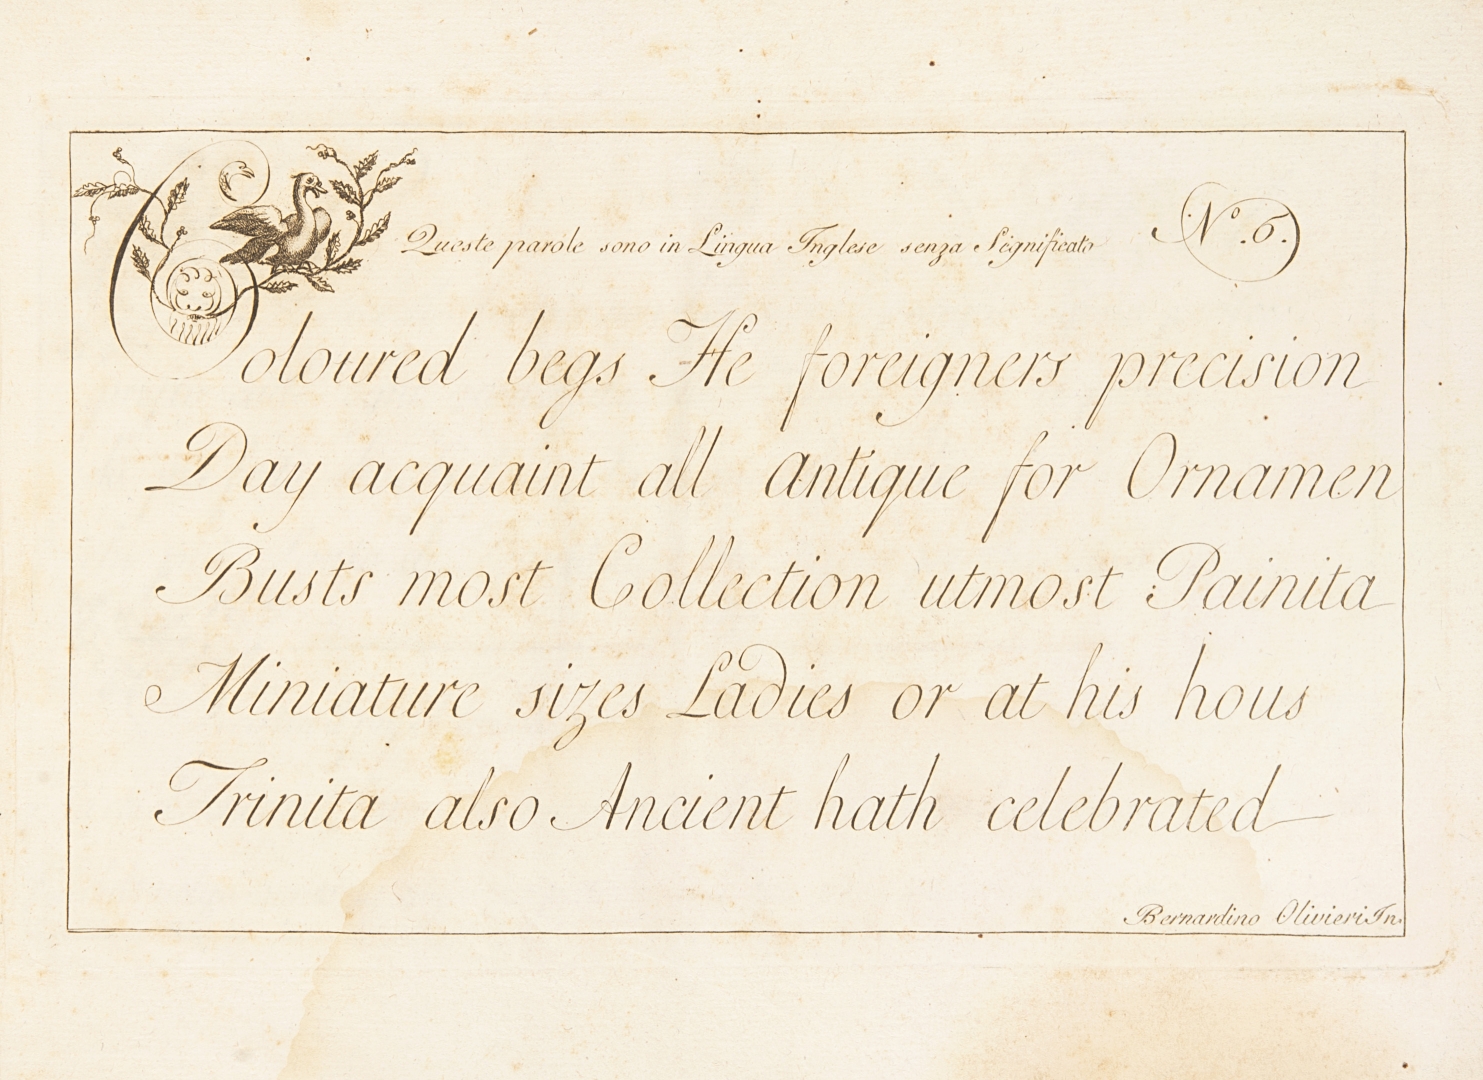 Queste parole sono in Lingua Inglese senza Significato
N.º 6.
Coloured begs He foreigners precision
Day acquaint all antique for Ornamen
Busts most Collection utmost Painita
Miniature sizes Ladies or at his hous
Trinita also Ancient hath celebrated
Bernardino Olivieri In.